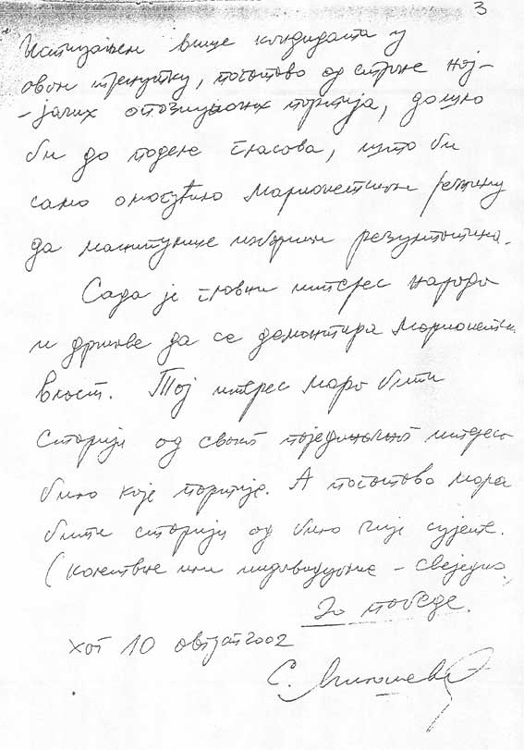 3
Истицањем више кандидата у
овом тренутку, поготово од стране нај-
-јачих опозиционих партија, дошло
би до поделе гласова, што би
само омогућило марионетском режиму
да манипулише изборним резултатима.
Сада је главни интерес народа
и државе да се демонтира марионетска
власт. Тај интерес мора бити
старији од сваког појединачног интереса
било које партије. А поготово мора
бити старији од било чије сујете.
(колективне или индивидуалне - свеједно
До победе.
Хаг 10 август 2002
С. Милошевић